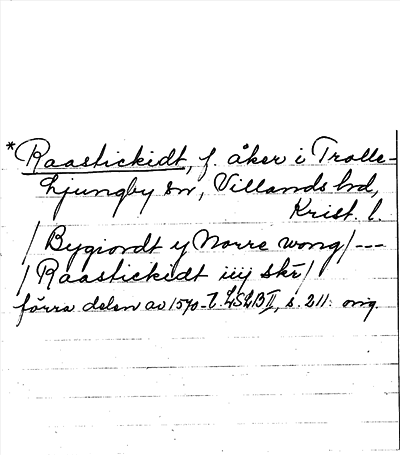 *Raastickidt, f. åker i Trolle-
Ljungby sn, Villands hd,
Krist. l.
/ Bygiordt y Norre wong / ---
/ Raastickidt iiij skr /
förra delen av 1570-t. LSLB II, s. 211. orig.